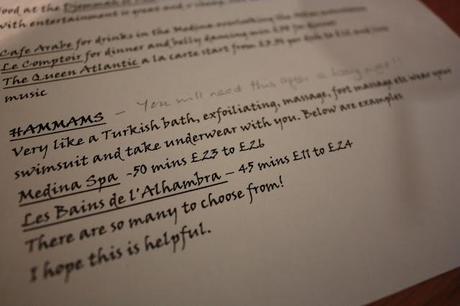 food at the Djemmah el
with entertainment is great and
Cafe Arabe for drinks in the Medina overlooking the
Le Comptoir for dinner and belly dancing min £
The Queen Atlantic a la carte start from £ per dish to £ and live
music
HAMMAMS – You will need this after a long
Very like a Turkish bath, exfoiliating, massage, foot massage etc wear your
swimsuit and take underwear with you. Below are examples
Medina Spa -50 mins £23 to £26
Les Bains de l'Alhambra – 45 mins £11 to £24
There are so many to choose from!
I hope this is helpful.